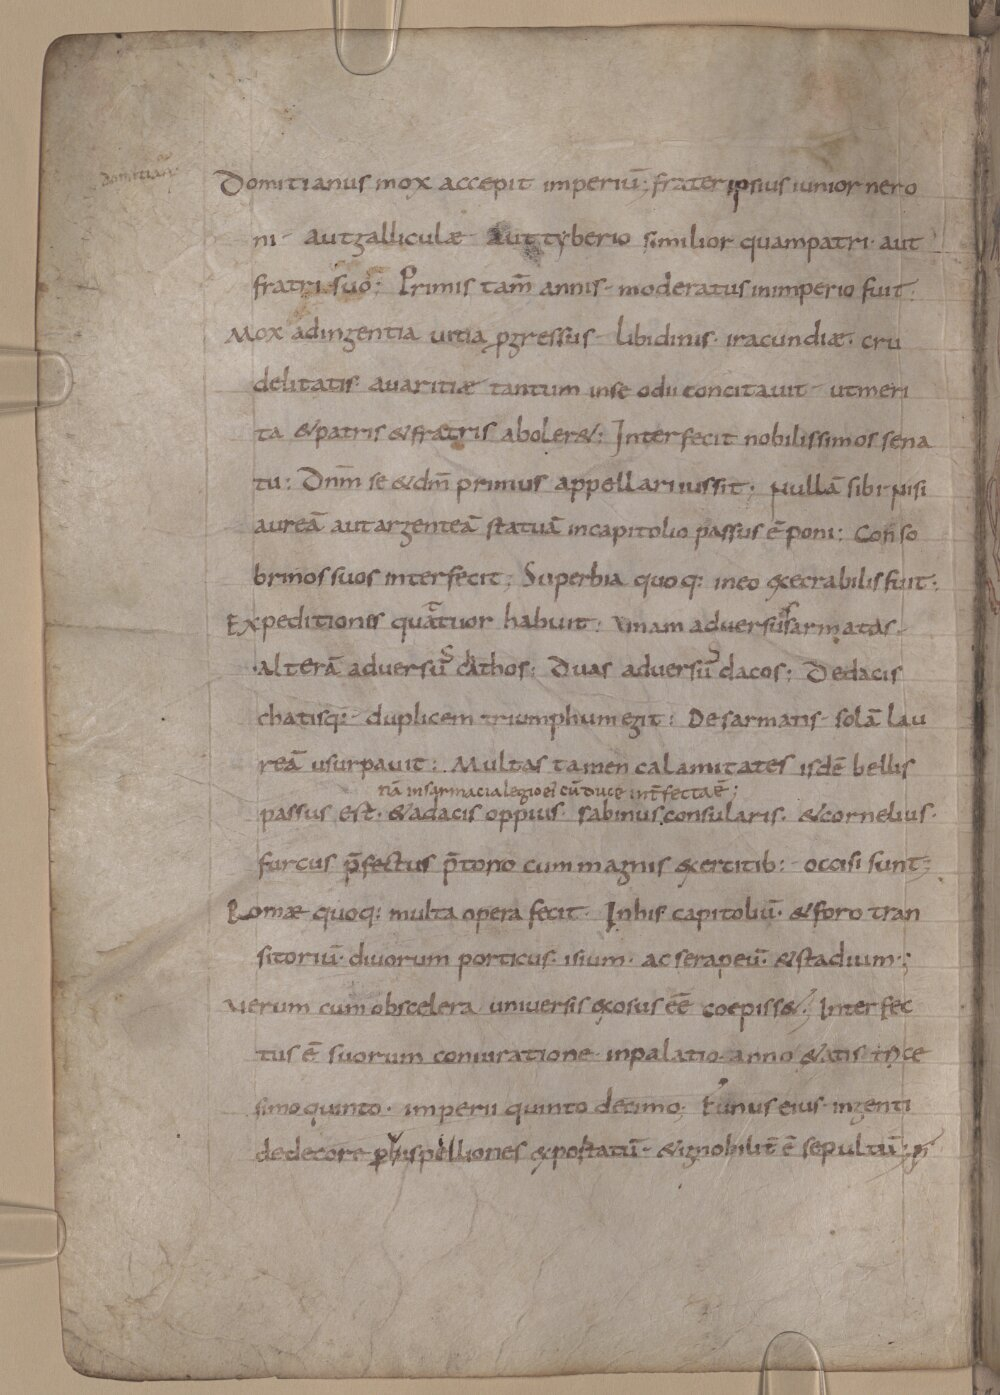 Domitian;
Domitianus mox accepit imperiū; frater ipsius iunior nero
ni· aut galliculæ aut tyberio similior quampatri· aut
fratri suo; Primis tam̄ annis· moderatus inimperio fuit·
Mox adingentia uitia ꝓgressus· libidinis· iracundiæ· cru
delitatis· auaritiæ tantum inse odii concitauit· utmeri
ta &patris &fratris aboler&; Interfecit nobilissimos sena
tu; Dn̄m se &dm̄ primus appellari iussit; Nullā sibi Nisi
aureā aut argenteā statuā incapitolio passus ē poni; Conso
brinos suos interfecit; Superbia quoq; ineo execrabilis fuit;
Expeditiones quattuor habuit; Vnam aduersus sarmatas·
Alterā aduersū cathos; Duas aduersū dacos; Dedacis
chatisq;· duplicem triumphum egit; De sarmatis· solā lau
reā usurpauit; Multas tamen calamitates isdē bellis
nā in sarmacia legio ei cū duce int̄fecta ē;
passus est· &adacis oppius· sabinus consularis· &cornelius·
furcus p̄fectus p̄torio cum magnis exercitib; occisi sunt;
Romæ quoq; multa opera fecit· Inhis capitoliū· &foro tran
sitoriū· diuorum porticus· isium· ac serapeū· &stadium·;
Verum cum obscelera uniuersis exosus eē coepiss&; Interfec
tus ē suorum coniuratione· inpalatio· anno &atis trice
simo quinto· imperii quinto decimo; Funus eius· ingenti
dedecore ꝑ uispelliones exportatū· &ignobilit̄ ē sepultū;